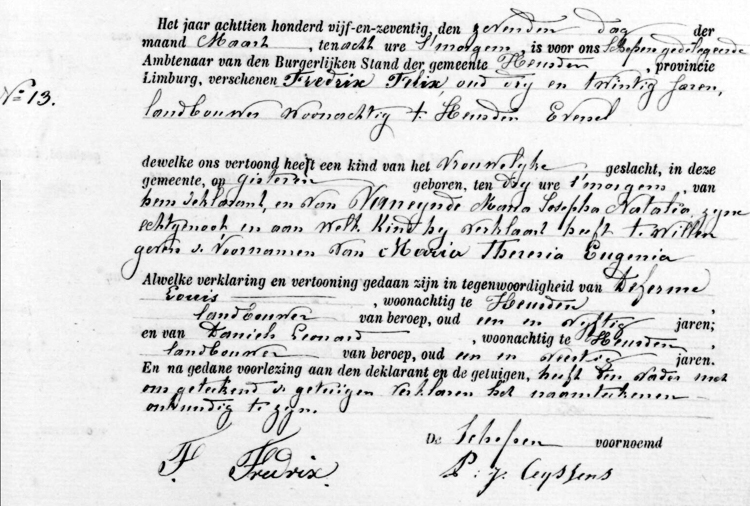 Het jaar achttien honderd vijf-en-zeventig, den zevenden dag der
maand Maart, ten acht ure s'morgens, is voor ons Schepen gedelegeerde
Ambtenaar van den Burgerlijken Stand der gemeente Heusden, provincie
N° 13.
Limburg, verschenen Fredrix Felix, oud dry en twintig jaren,
landbouwer woonachtig t Heusden Eversel
dewelke ons vertoond heeft een kind van het vrouwelyke geslacht, in deze
gemeente, op gisteren geboren, ten dry ure s'morgens, van
hem deklarant, en van Verreynde Maria Josepha Natalia, zyne
echtgenoot en aan welk kind hy verklaart heeft te willen
geven de voornamen van Maria Theresia Eugenia
Alwelke verklaring en vertooning gedaan zijn in tegenwoordigheid van Deferme
Louis, woonachtig te Heusden
landbouwer van beroep, oud een en vyftig jaren;
en van Daniels Leonard, woonachtig te Heusden
landbouwer van beroep, oud een en veertig jaren.
En na gedane voorlezing aan den deklarant en de getuigen, heeft den vader met
ons geteekend de getuigen verklaren het naamteekenen
onkundig te zyn.
De Schepen voornoemd
F. Fredrix P. J. Ceyssens